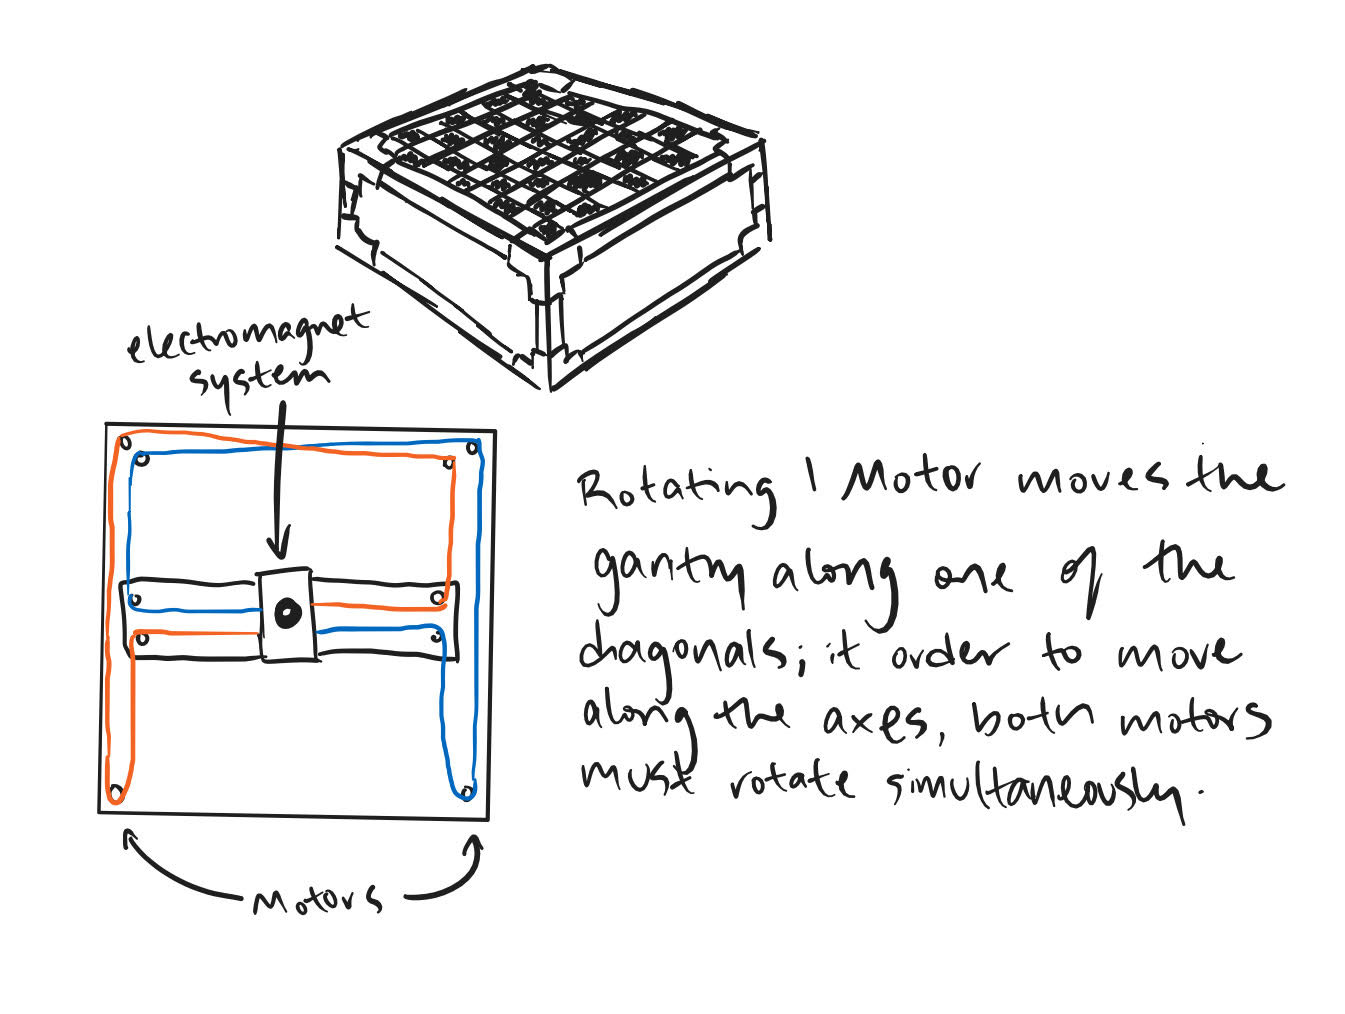 electromagnet
system
Rotating 1 Motor moves the
gantry along one of the
diagonals; it order to move
along the axes, both motors
must rotate simultaneously.
Motors